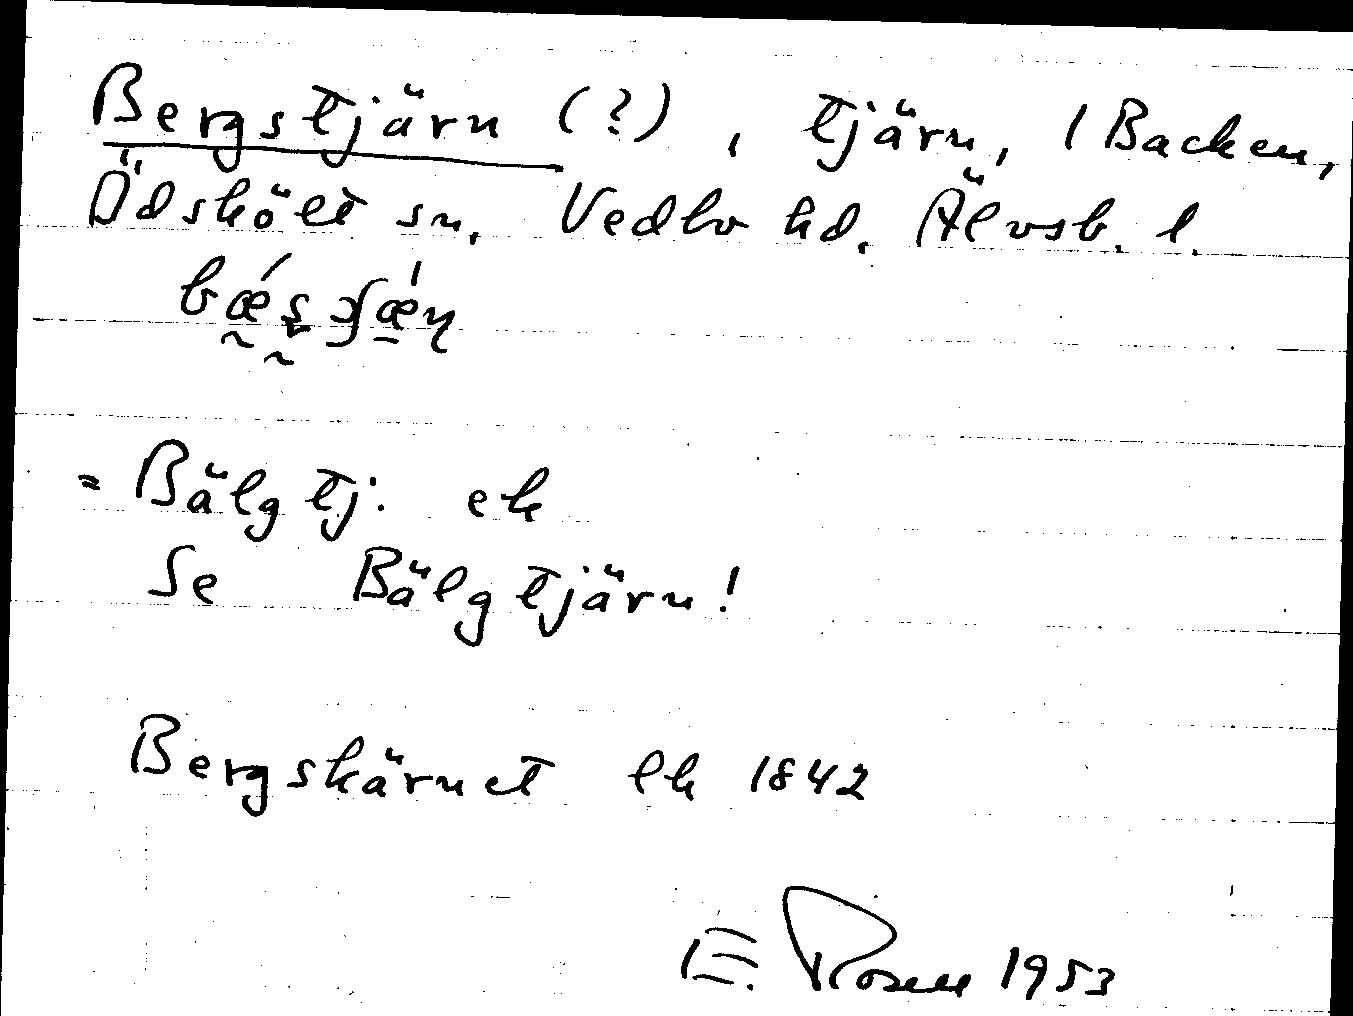 Bergstjärn (?), tjärn, 1 Backen,
Ödskölt sn, Vedbo hd. Älvsb. l.
= Bälgtj: ek
Se Bälgtjärn!
Bergskärnet lk 1842
E. Rosell 1953